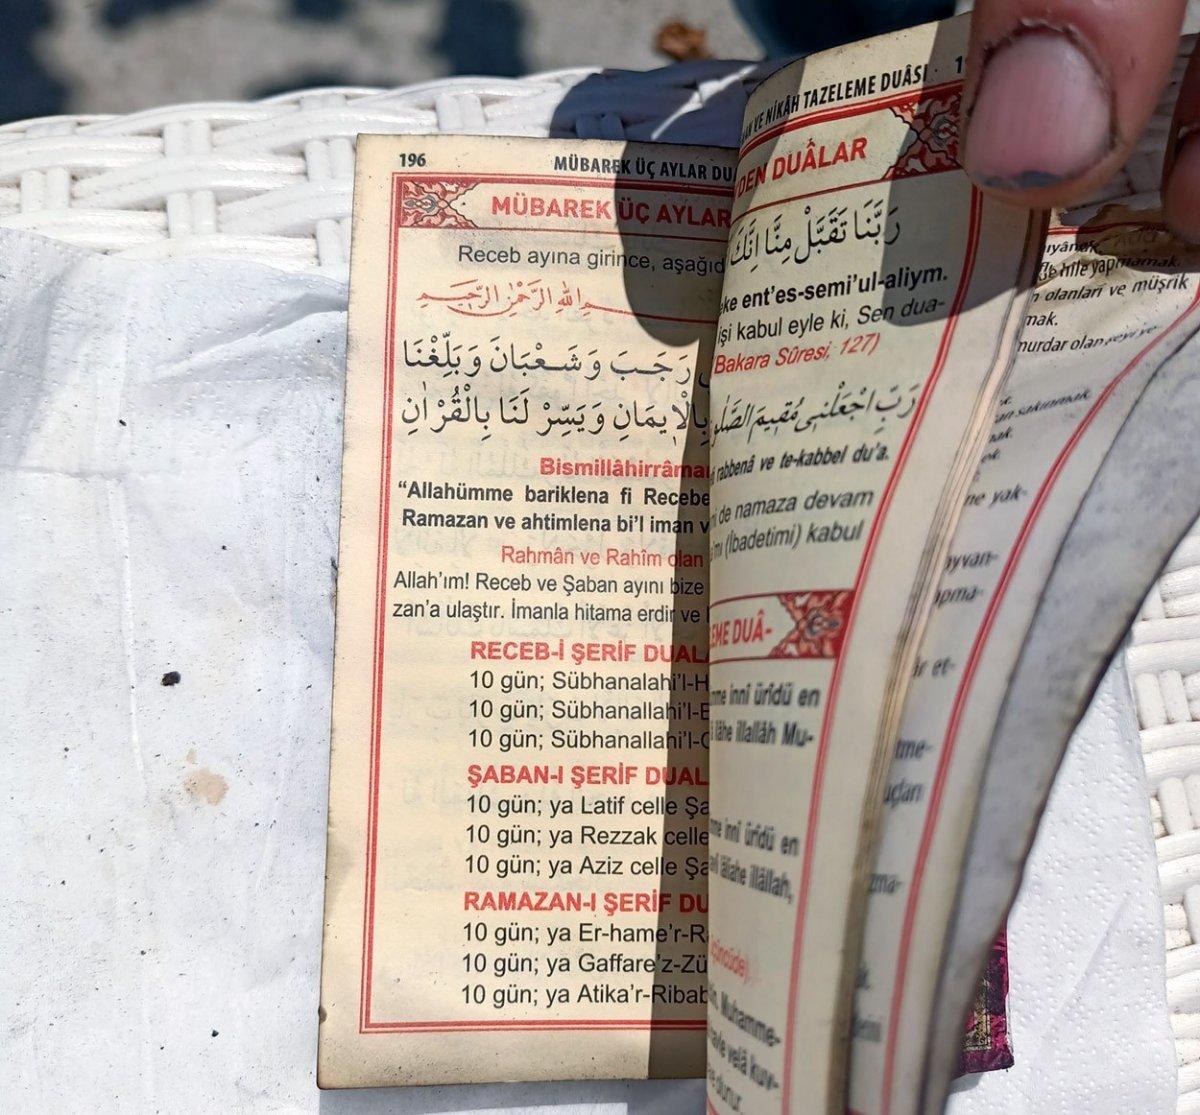 196 MÜBAREK ÜÇ AYLAR DU
MÜBAREK ÜÇ AYLAR
Receb ayına girince, aşağıd
الله الرَّحْمٰنِ الرَّحِيمِ
رَجَبَ وَشَعْبَانَ وَبَلِّغْنَا
بِالْاِيمَانِ وَيَسِّرْ لَنَا بِالْقُرْاٰنِ
Bismillâhirrâman
“Allahümme bariklena fi Recebe
Ramazan ve ahtimlena bi’l iman v
Rahmân ve Rahîm olan
Allah’ım! Receb ve Şaban ayını bize
zan’a ulaştır. İmanla hitama erdir ve
RECEB-İ ŞERİF DUAL
10 gün; Sübhanalahi’l-H
10 gün; Sübhanallahi’l-E
10 gün; Sübhanallahi’l-
ŞABAN-I ŞERİF DUAL
10 gün; ya Latif celle Şa
10 gün; ya Rezzak celle
10 gün; ya Aziz celle Şa
RAMAZAN-I ŞERİF DU
10 gün; ya Er-hame’r-R
10 gün; ya Gaffare’z-Zü
10 gün; ya Atika’r-Ribab
VE NİKÂH TAZELEME DUÂSI
DEN DUÂLAR
رَبَّنَا تَقَبَّلْ مِنَّا اِنَّكَ
ke ent’es-semi’ul-aliym.
işi kabul eyle ki, Sen dua-
Bakara Sûresi, 127)
رَبِّ اجْعَلْنِى مُقِيمَ الصَّلٰو
rabbenâ ve te-kabbel du’a.
de namaza devam
mı (İbadetimi) kabul
EME DUÂ-
me innî ürîdü en
lâhe illallâh Mu-
me innî ürîdü en
lâilahe illâllah,
üncüde)
Muhamme-
velâ kuv-
dunur.
hile yapmamak.
olanları ve müşrik
mak.
murdar olan şeyi ye-
sakınmak
mak.
ne yak-
ayvan-
apma-
ir et-
tme-
uçları
zma-